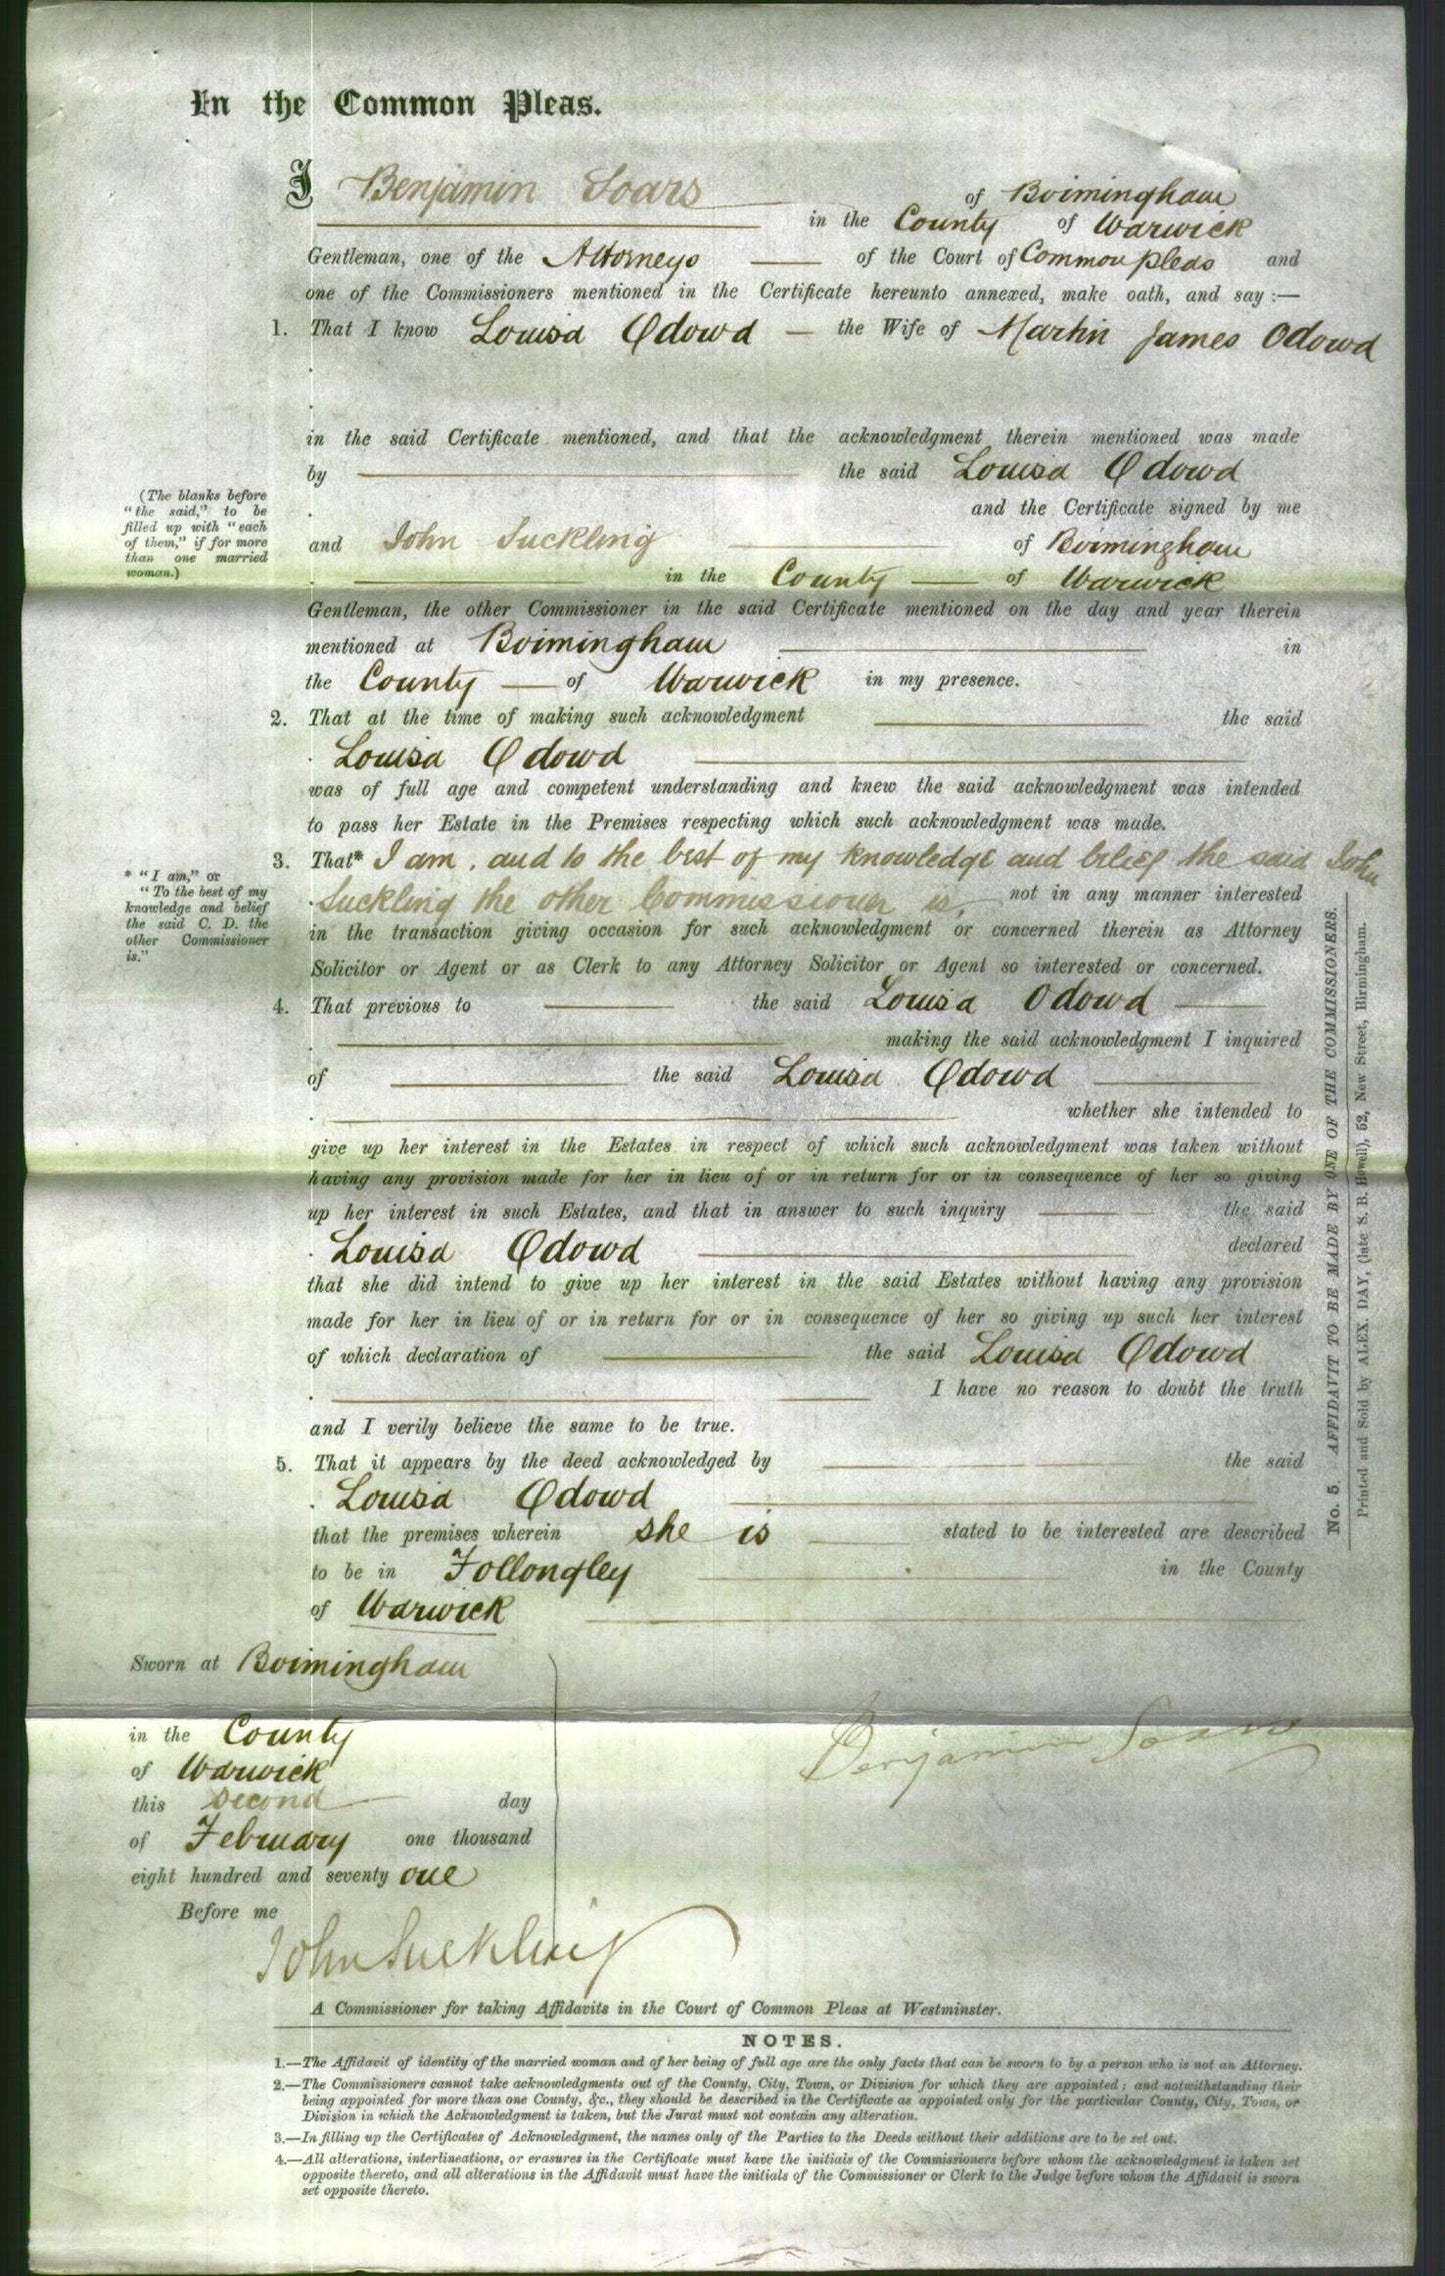 In the Common Pleas.
I Benjamin Soars of Birmingham
in the County of Warwick
Gentleman, one of the Attorneys of the Court of Common pleas and
one of the Commissioners mentioned in the Certificate hereunto annexed, make oath, and say :—
1. That I know Louisa Odowd — the Wife of Martin James Odowd
in the said Certificate mentioned, and that the acknowledgment therein mentioned was made
by the said Louisa Odowd
and the Certificate signed by me
(The blanks before
"the said," to be
filled up with "each
of them," if for more
than one married
woman.)
and John Suckling of Birmingham
in the County of Warwick
Gentleman, the other Commissioner in the said Certificate mentioned on the day and year therein
mentioned at Birmingham in
the County — of Warwick in my presence.
2. That at the time of making such acknowledgment the said
Louisa Odowd
was of full age and competent understanding and knew the said acknowledgment was intended
to pass her Estate in the Premises respecting which such acknowledgment was made.
3. That* I am, and to the best of my knowledge and belief the said John
Suckling the other Commissioner is, not in any manner interested
in the transaction giving occasion for such acknowledgment or concerned therein as Attorney
Solicitor or Agent or as Clerk to any Attorney Solicitor or Agent so interested or concerned.
* "I am," or
"To the best of my
knowledge and belief
the said C. D. the
other Commissioner
is."
4. That previous to the said Louisa Odowd
making the said acknowledgment I inquired
of the said Louisa Odowd
whether she intended to
give up her interest in the Estates in respect of which such acknowledgment was taken without
having any provision made for her in lieu of or in return for or in consequence of her so giving
up her interest in such Estates, and that in answer to such inquiry the said
Louisa Odowd declared
that she did intend to give up her interest in the said Estates without having any provision
made for her in lieu of or in return for or in consequence of her so giving up such her interest
of which declaration of the said Louisa Odowd
I have no reason to doubt the truth
and I verily believe the same to be true.
5. That it appears by the deed acknowledged by the said
Louisa Odowd
that the premises wherein she is stated to be interested are described
to be in Follongley in the County
of Warwick
Sworn at Birmingham
in the County
of Warwick
this second day
of February one thousand
eight hundred and seventy one
Before me
Benjamin Soars
John Suckling
A Commissioner for taking Affidavits in the Court of Common Pleas at Westminster.
NOTES.
1.—The Affidavit of identity of the married woman and of her being of full age are the only facts that can be sworn to by a person who is not an Attorney.
2.—The Commissioners cannot take acknowledgments out of the County, City, Town, or Division for which they are appointed; and notwithstanding their
being appointed for more than one County, &c., they should be described in the Certificate as appointed only for the particular County, City, Town, or
Division in which the Acknowledgment is taken, but the Jurat must not contain any alteration.
3.—In filling up the Certificates of Acknowledgment, the names only of the Parties to the Deeds without their additions are to be set out.
4.—All alterations, interlineations, or erasures in the Certificate must have the initials of the Commissioners before whom the acknowledgment is taken set
opposite thereto, and all alterations in the Affidavit must have the initials of the Commissioner or Clerk to the Judge before whom the Affidavit is sworn
set opposite thereto.
No. 5. AFFIDAVIT TO BE MADE BY ONE OF THE COMMISSIONERS.
Printed and Sold by ALEX. DAY, (late S. B. Howell), 52, New Street, Birmingham.